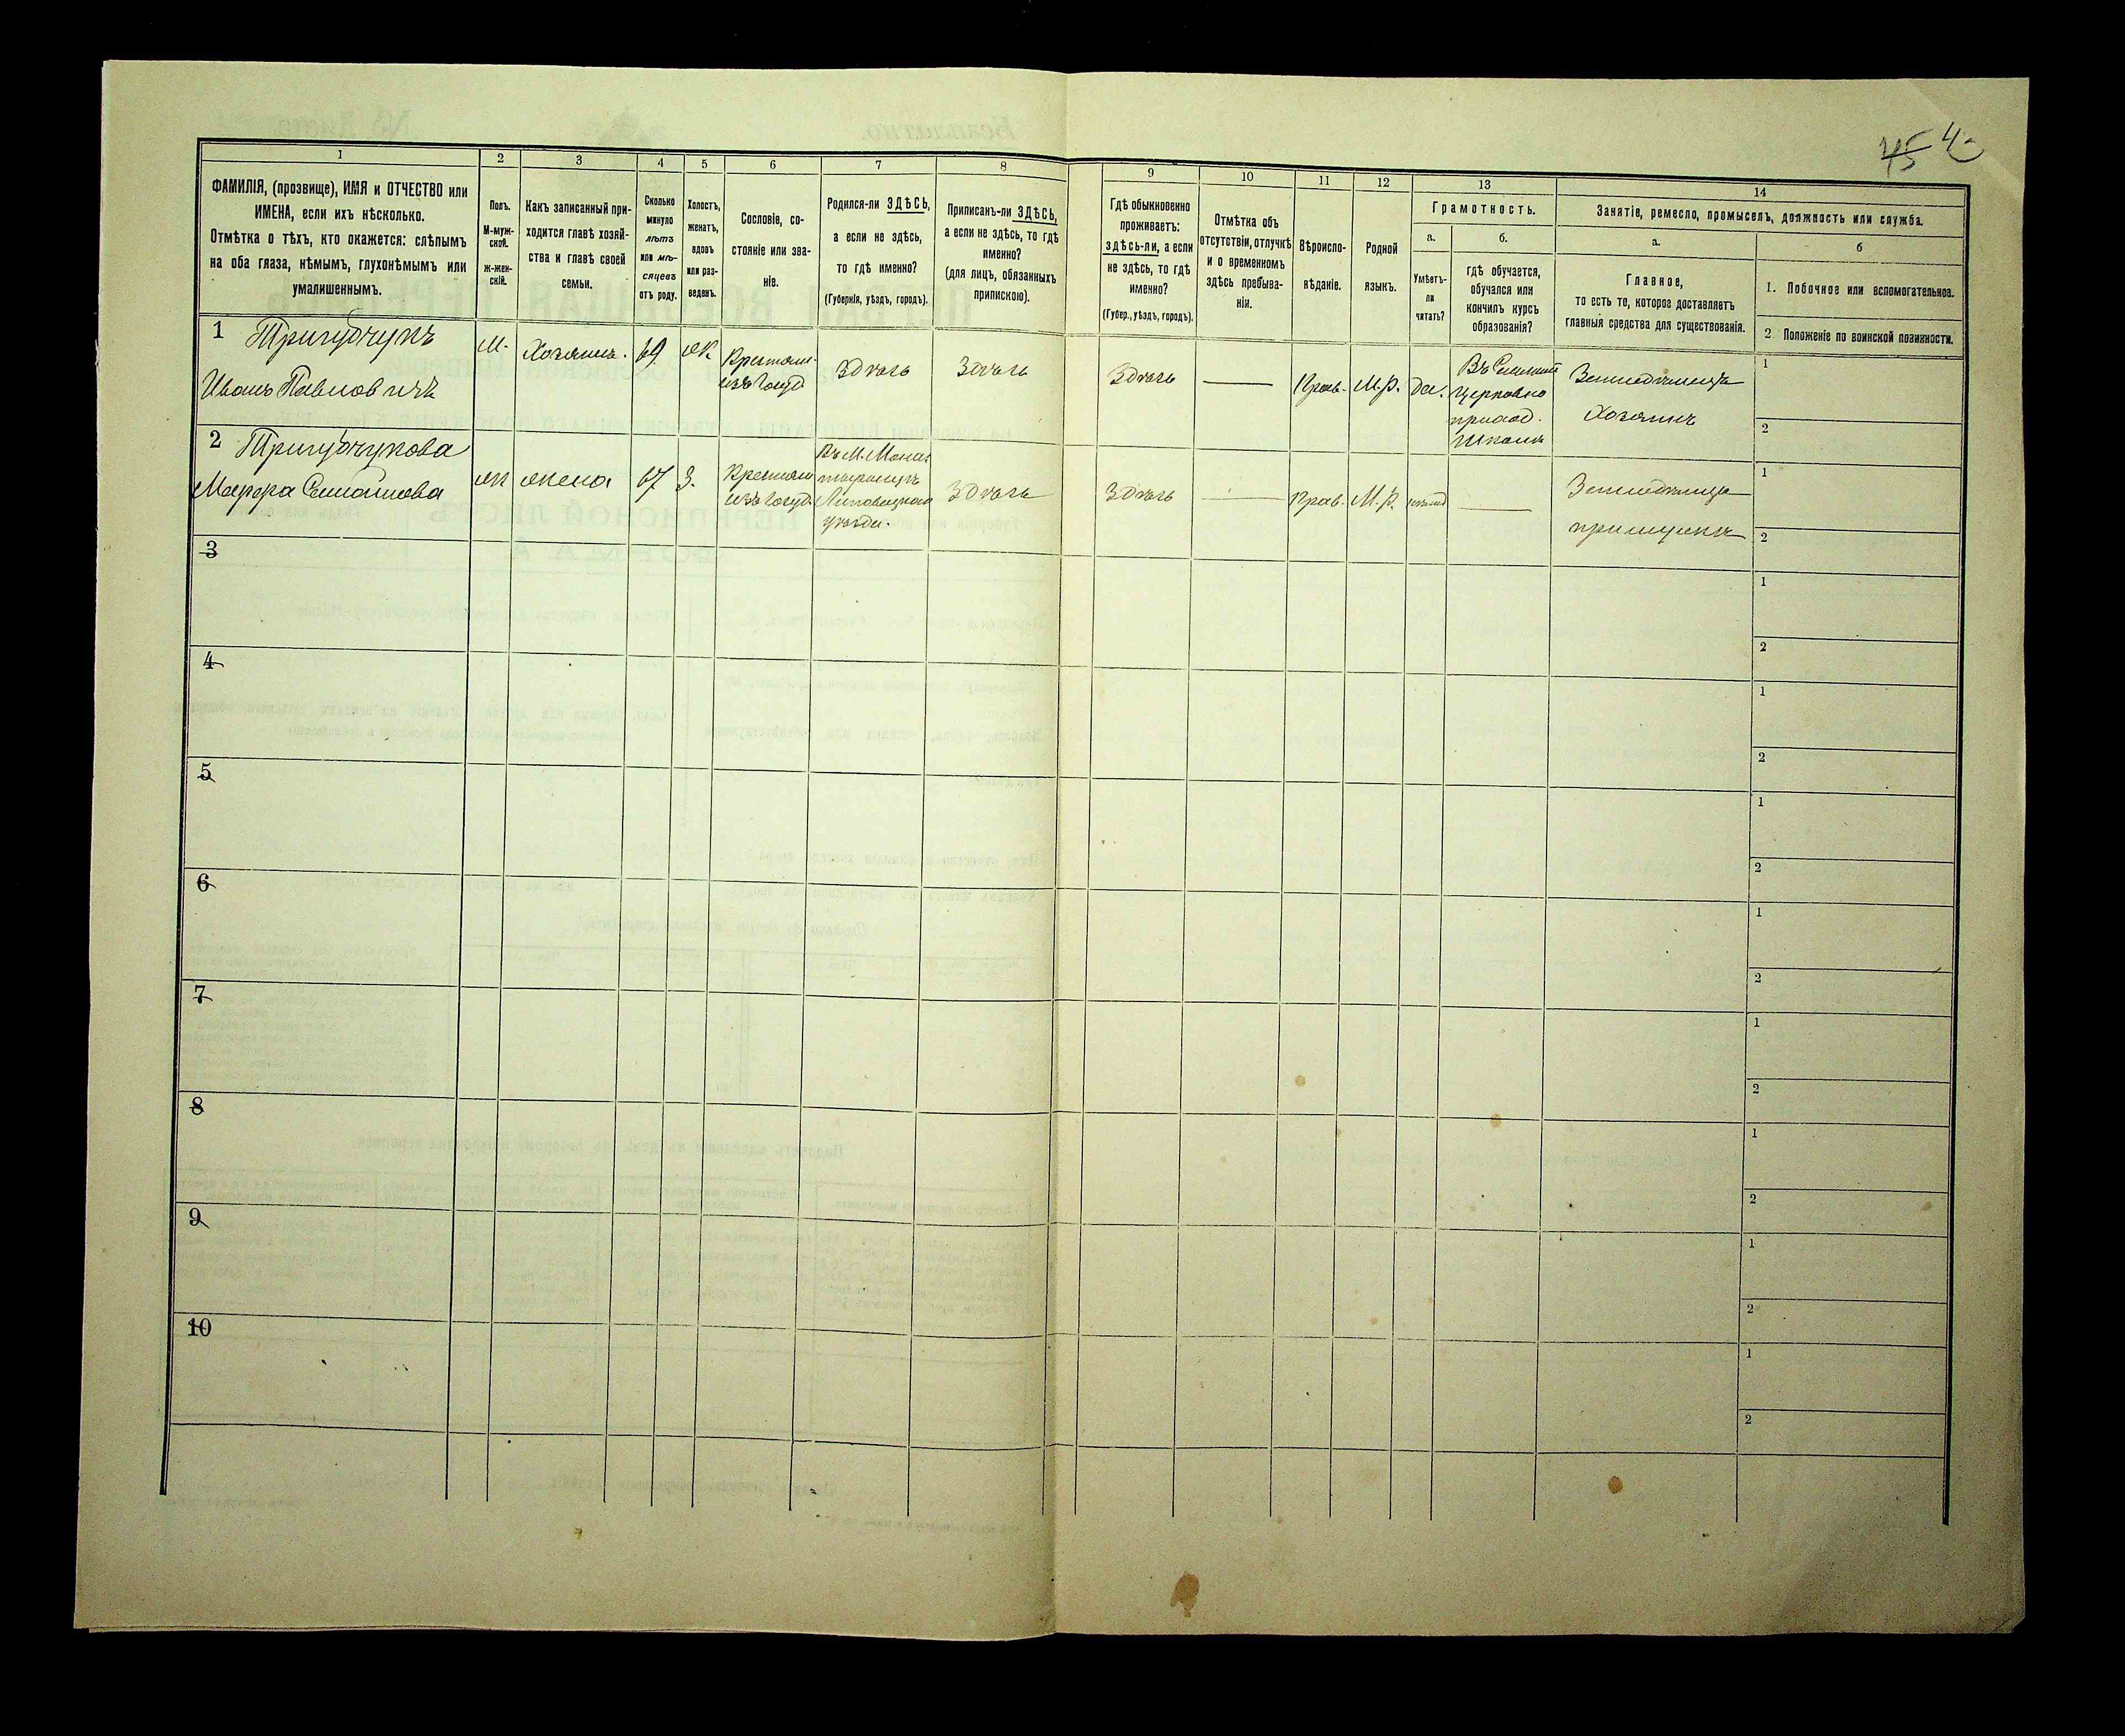 45
1
2
3
4
5
6
7
8
ФАМИЛІЯ, (прозвище), ИМЯ и ОТЧЕСТВО или
ИМЕНА, если ихъ нѣсколько.
Отмѣтка о тѣхъ, кто окажется: слѣпымъ
на оба глаза, нѣмымъ, глухонѣмымъ или
умалишеннымъ.
Полъ.
М-муж-
ской.
ж-жен-
скій.
Какъ записанный при-
ходится главѣ хозяй-
ства и главѣ своей
семьи.
Сколько
минуло
лѣтъ
или мѣ-
сяцевъ
отъ роду.
Холостъ,
женатъ,
вдовъ
или раз-
веденъ.
Сословіе, со-
стояніе или зва-
ніе.
Родился-ли ЗДѢСЬ,
а если не здѣсь,
то гдѣ именно?
(Губернія, уѣздъ, городъ).
Приписанъ-ли ЗДѢСЬ,
а если не здѣсь, то гдѣ
именно?
(для лицъ, обязанныхъ
припискою).
9
10
11
12
13
14
Гдѣ обыкновенно
проживаетъ:
здѣсь-ли, а если
не здѣсь, то гдѣ
именно?
(Губер., уѣздъ, городъ).
Отмѣтка объ
отсутствіи, отлучкѣ
и о временномъ
здѣсь пребыва-
ніи.
Вѣроиспо-
вѣданіе.
Родной
языкъ.
Грамотность.
а.
б.
Умѣетъ-
ли
читать?
гдѣ обучается,
обучался или
кончилъ курсъ
образованія?
Занятіе, ремесло, промыселъ, должность или служба.
а.
б
Главное,
то есть то, которое доставляетъ
главныя средства для существованія.
1. Побочное или вспомогательное.
2 Положеніе по воинской повинности.
1 Тригубчукъ
Иванъ Павловичъ
М.
Хозяинъ.
69
ж
Крестьян.
изъ госуд
Здѣсь
Здѣсь
Здѣсь
Прав.
М.р.
да.
церковно
приход.
школѣ
Хозяинъ
1
2
2 Тригубчукова
Семайлова
ж
жена
67
З.
Крестьян
изъ госуд.
Въ М. Монас
тырищѣ
Липовецкаго
уѣзда.
Здѣсь
Здѣсь
Прав.
М.р.
1
2
3
1
2
4
1
2
5
1
2
6
1
2
7
1
2
8
1
2
9
1
2
10
1
2